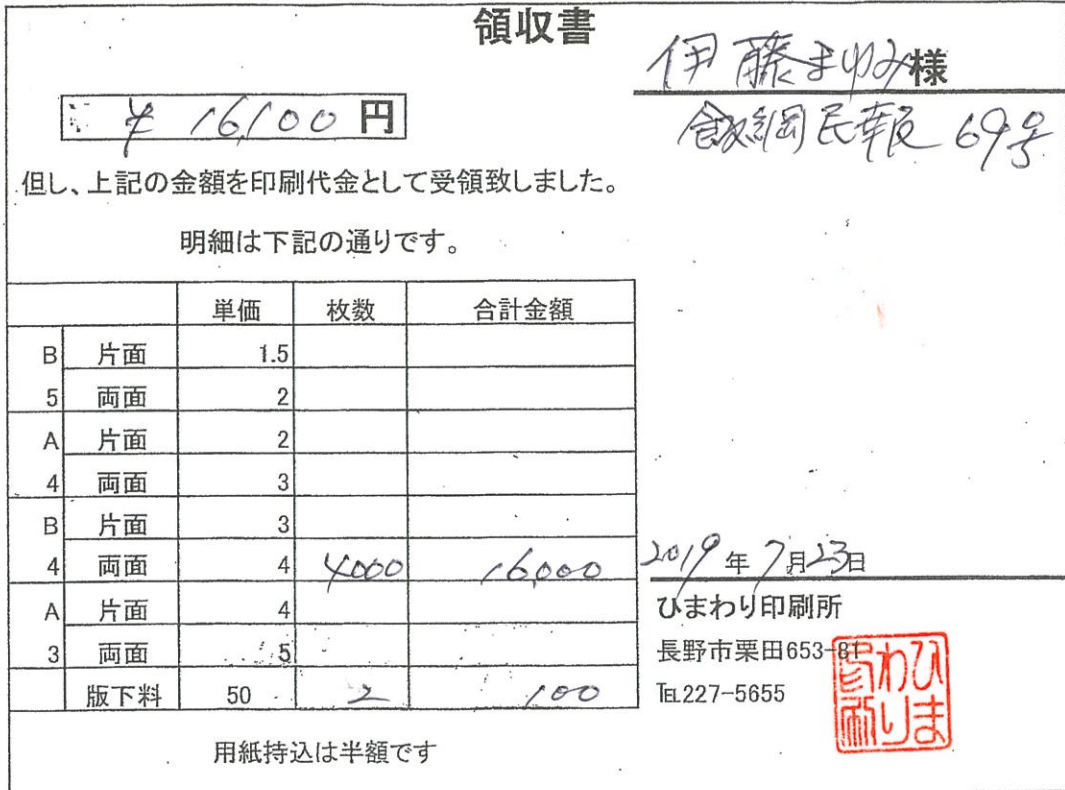 領収書
伊藤まゆみ様
¥ 16,100 円
飯綱民報 69号
但し、上記の金額を印刷代金として受領致しました。
明細は下記の通りです。
単価 枚数 合計金額
B 片面 1.5
5 両面 2
A 片面 2
4 両面 3
B 片面 3
4 両面 4 4000 16,000
A 片面 4
3 両面 5
版下料 50 2 100
2019年7月23日
ひまわり印刷所
長野市栗田653-81
℡227-5655
ひまわり印刷
用紙持込は半額です